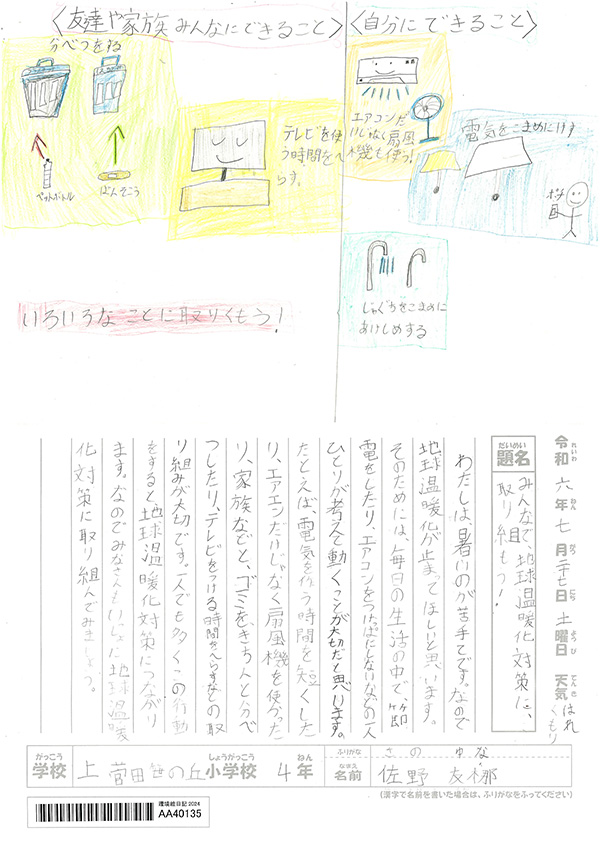 〈友達や家族みんなにできること〉
分べつをする
ペットボトル
ばんそこう
テレビを使
う時間をへ
らす。
いろいろなことに取りくもう!
〈自分にできること〉
エアコンだ
けじゃなく扇風
機も使う!
電気をこまめにけす
ポチ
じゃぐちをこまめに
あけしめする
令和六年七月二十七日土曜日 天気 はれ くもり
れいわ ねん がつ にち ようび てんき
だいめい
題名
みんなで、地球温暖化対策に、
取り組もう!
わたしは、暑いのが苦手てです。なので
地球温暖化が止まってほしいと思います。
そのためには、毎日の生活の中で、節
電をしたり、エアコンをつけっぱにしないなどの一人
ひとりが考えて動くことが大切だと思います。
たとえば、電気を使う時間を短くした
り、エアコンだけじゃなく扇風機を使かった
り、家族などと、ゴミをきちんと分べ
つしたり、テレビをつける時間をへらすなどの取
り組みが大切です。一人でも多くこの行動
をすると地球温暖化対策につながり
ます。なのでみなさんもいっしょに地球温暖
化対策に取り組んでみましょう。
がっこう
学校
上菅田笹の丘
しょうがっこう
小学校
4
ねん
年
ふりがな
さの ゆな
なまえ
名前
佐野 友梛
(漢字で名前を書いた場合は、ふりがなをふってください)
環境絵日記 2024
AA40135